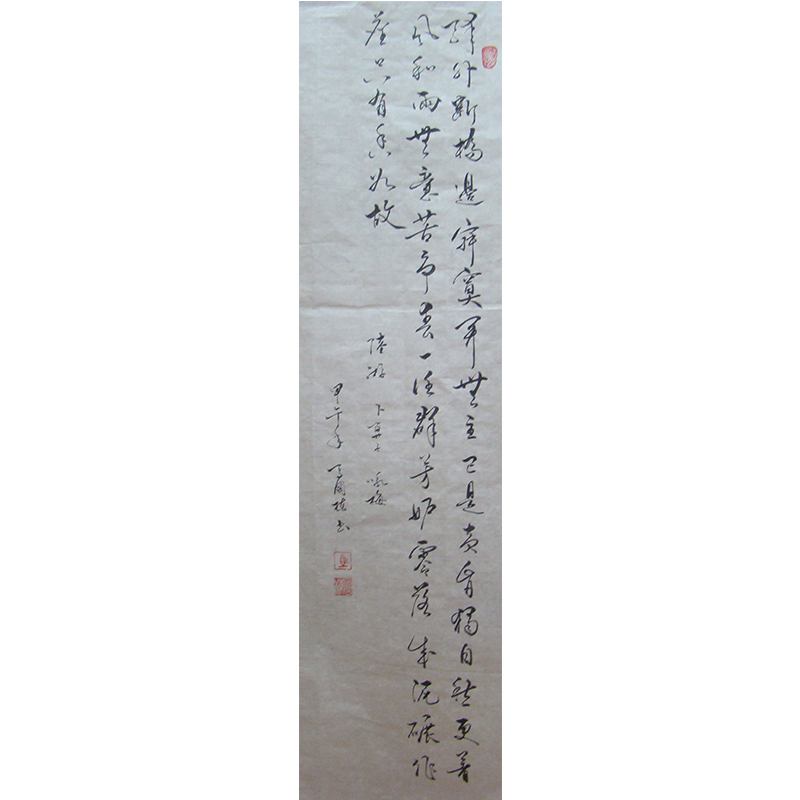 驛外斷橋邊寂寞開無主已是黃昏獨自愁更著
風和雨無意苦爭春一任群芳妒零落成泥碾作
塵只有香如故
陸游 卜算子 咏梅
甲午年 丁國桂書